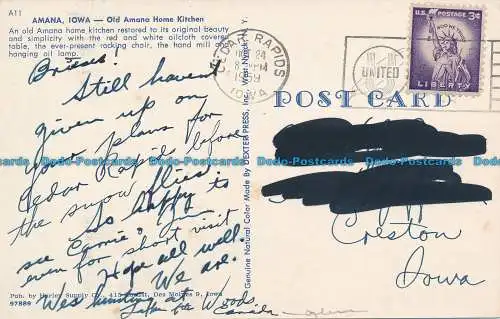 A11
AMANA, IOWA — Old Amana Home Kitchen
An old Amana home kitchen restored to its original beauty
and simplicity with the red and white oilcloth covered
table, the ever-present rocking chair, the hand mill and
hanging oil lamp.
Still haven't
given up on
your plans for
Cedar Rapids before
the snow flies
So happy to
see Connie &
even for short visit
Hope all well.
We are.
Wes hunting at
Lake of the Woods,
Canada
Pub. by Hurley Supply Co., 415 Des Moines 9, Iowa
97889
Genuine Natural Color Made by DEXTER PRESS, Inc. West Nyack, N. Y.
CEDAR RAPIDS
24
1959
IOWA
UNITED
U.S. POSTAGE 3¢
LIBERTY
POST CARD
Creston
Iowa
Dodo-Postcards.com